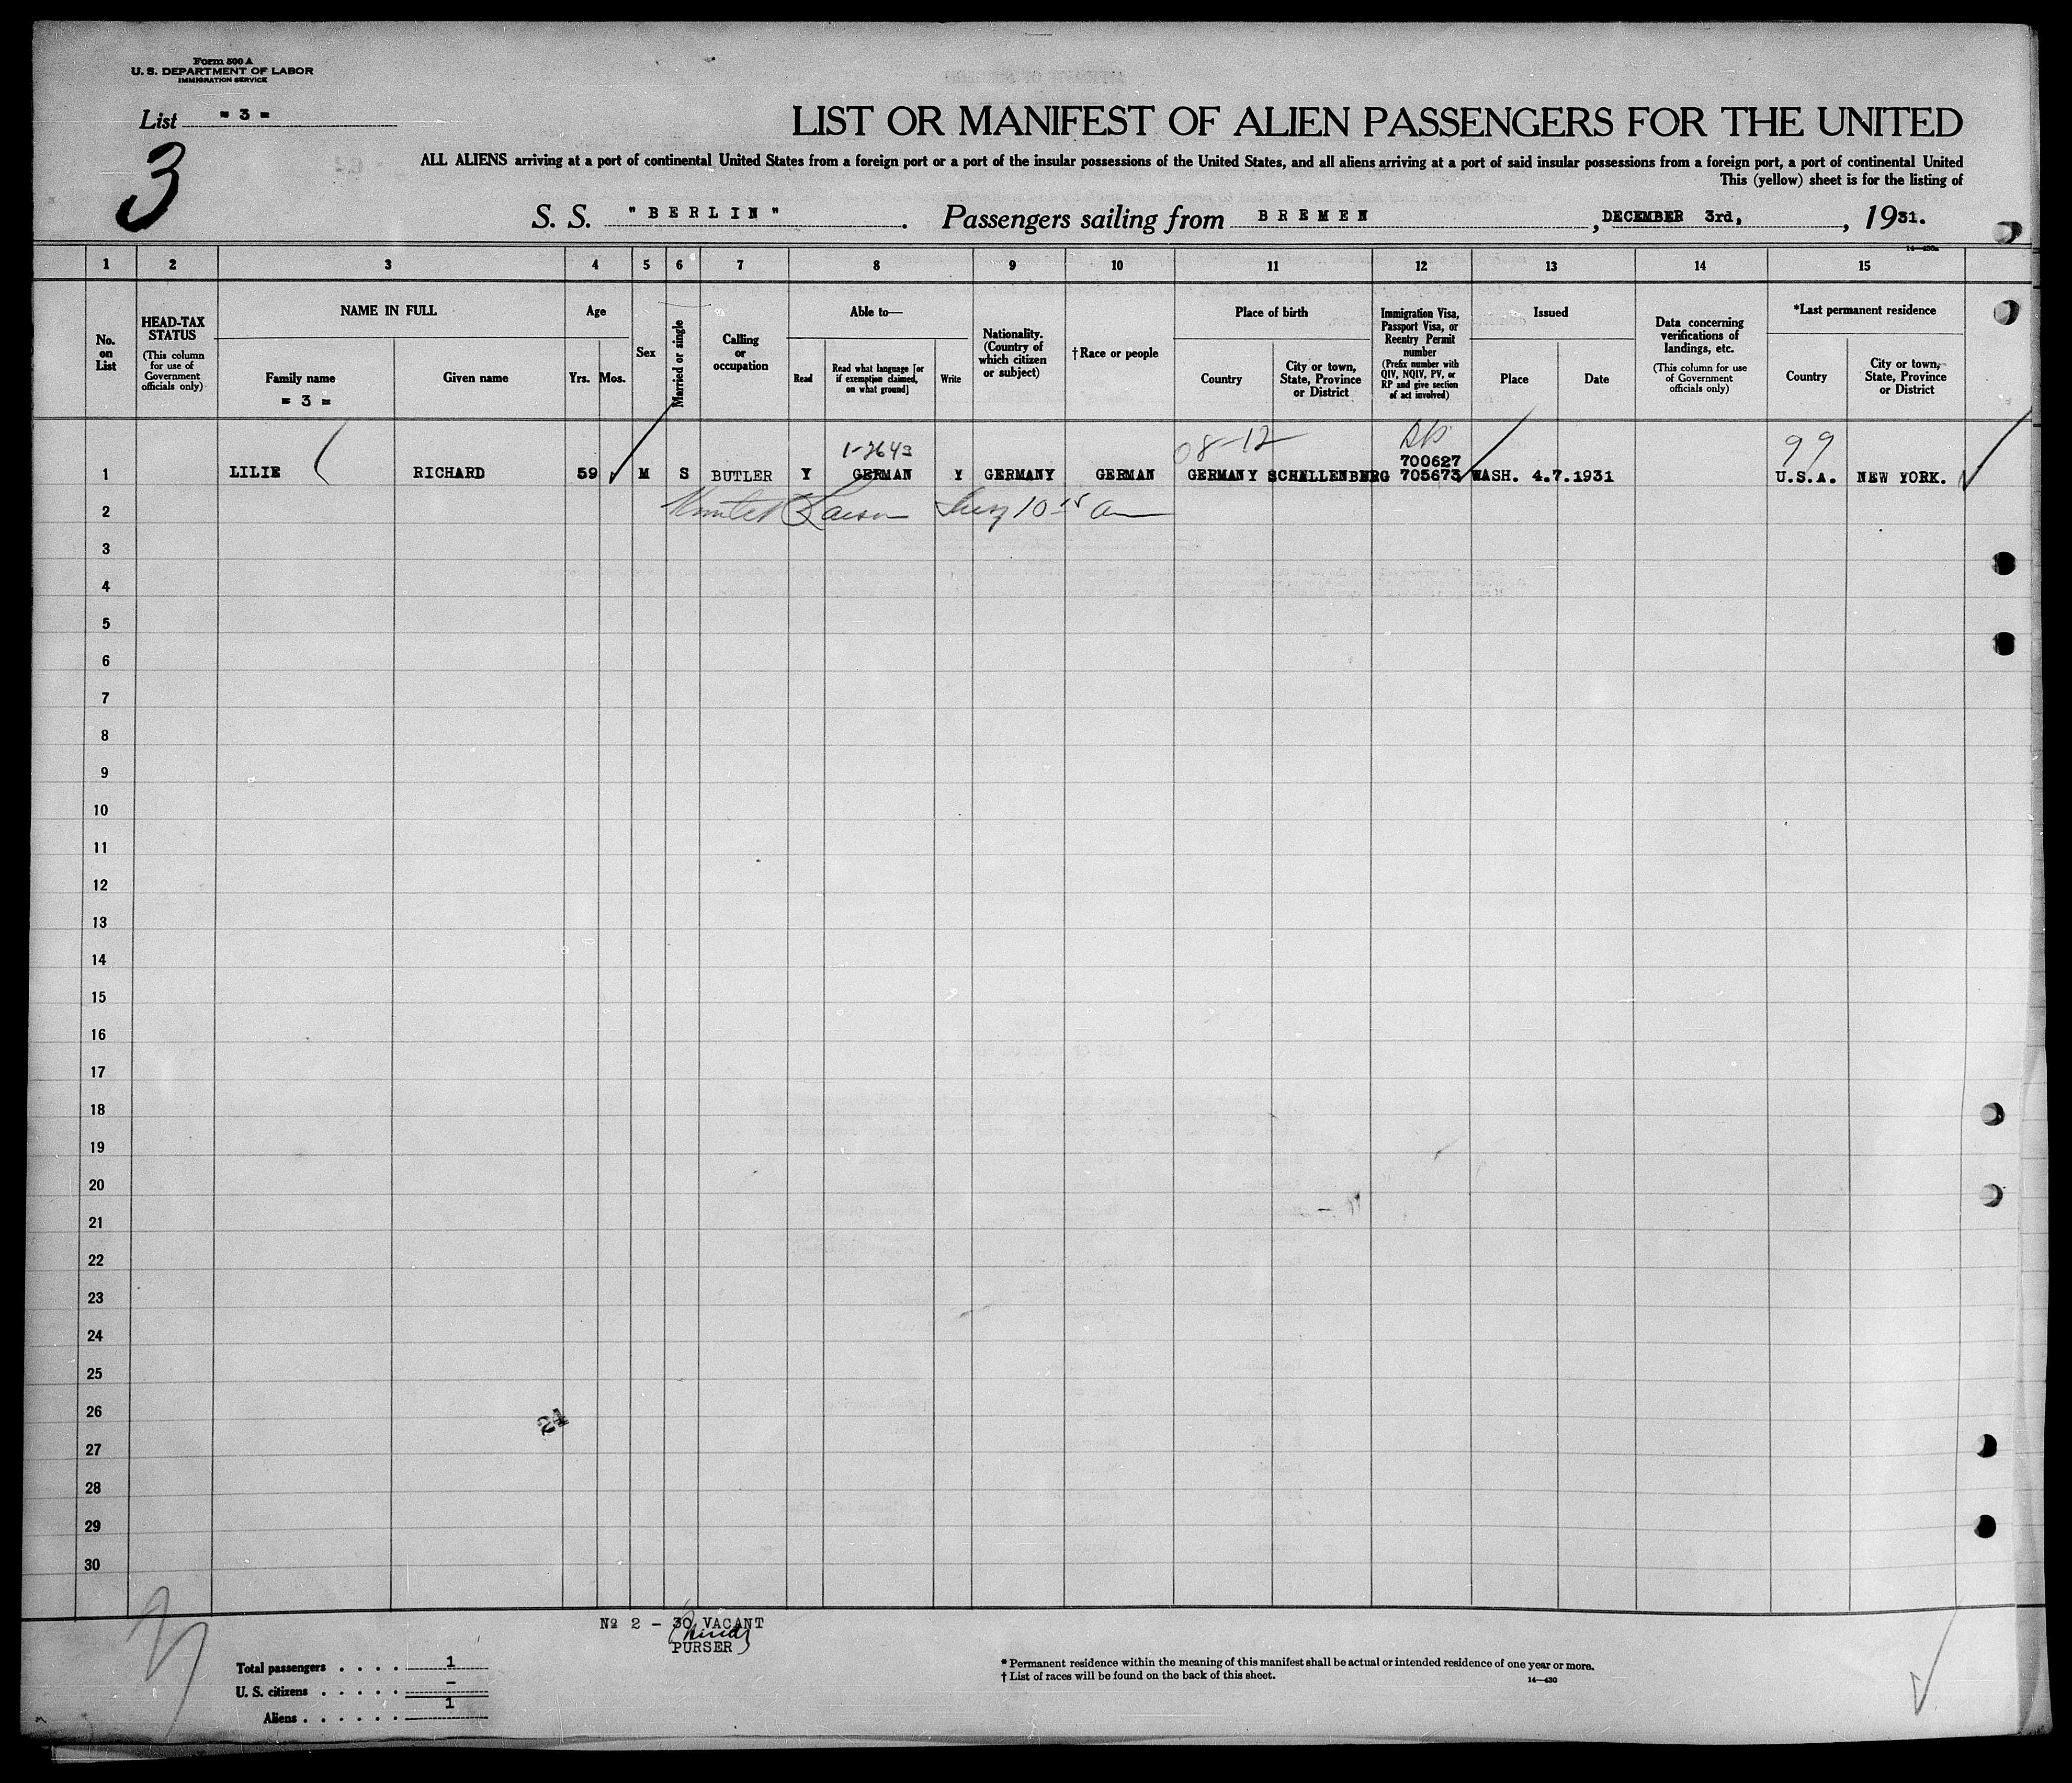 Form 500 A
U. S. DEPARTMENT OF LABOR
IMMIGRATION SERVICE
List = 3 =
3
LIST OR MANIFEST OF ALIEN PASSENGERS FOR THE UNITED
ALL ALIENS arriving at a port of continental United States from a foreign port or a port of the insular possessions of the United States, and all aliens arriving at a port of said insular possessions from a foreign port, a port of continental United
This (yellow) sheet is for the listing of
S. S. "BERLIN". Passengers sailing from BREMEN, DECEMBER 3rd,, 1931.
14—430a
1 2 3 4 5 6 7 8 9 10 11 12 13 14 15
No. on List
HEAD-TAX STATUS
(This column for use of Government officials only)
NAME IN FULL
Family name
= 3 =
Given name
Age
Yrs. Mos.
Sex
Married or single
Calling or occupation
Able to—
Read
Read what language [or if exemption claimed, on what ground]
Write
Nationality. (Country of which citizen or subject)
†Race or people
Place of birth
Country
City or town, State, Province or District
Immigration Visa, Passport Visa, or Reentry Permit number
(Prefix number with QIV, NQIV, PV, or RP and give section of act involved)
Issued
Place
Date
Data concerning verifications of landings, etc.
(This column for use of Government officials only)
*Last permanent residence
Country
City or town, State, Province or District
1-2643 08-12 99
700627
1 LILIE RICHARD 59 M S BUTLER Y GERMAN Y GERMANY GERMAN GERMANY SCHELLENBERG 705673 WASH. 4.7.1931 U.S.A. NEW YORK.
2 10 15 am
3
4
5
6
7
8
9
10
11
12
13
14
15
16
17
18
19
20
21
22
23
24
25
26
24
27
28
29
30
№ 2 - 30 VACANT
PURSER
Total passengers . . . . 1
U. S. citizens . . . . . —
Aliens . . . . . . 1
* Permanent residence within the meaning of this manifest shall be actual or intended residence of one year or more.
† List of races will be found on the back of this sheet.
14—430